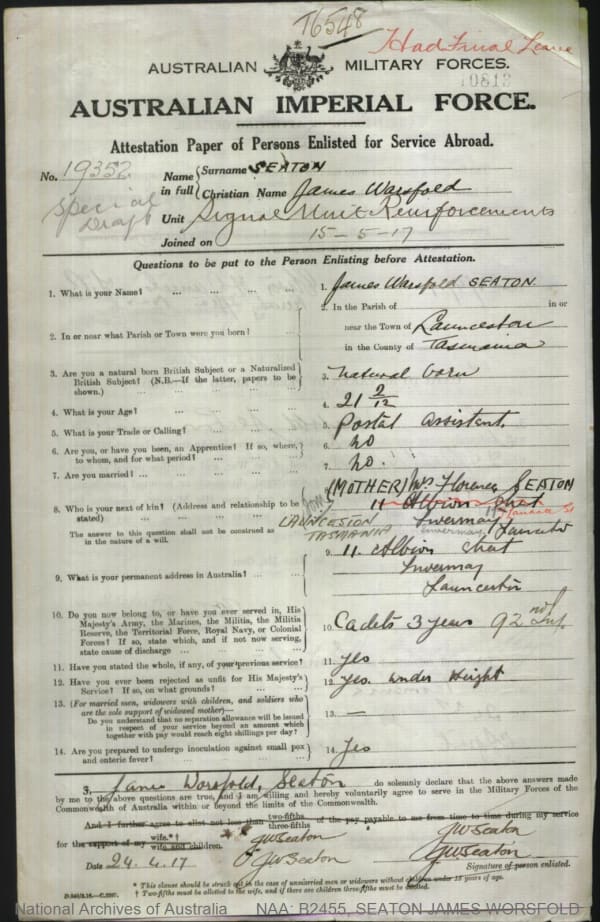 T6548
Had Final Leave
AUSTRALIAN MILITARY FORCES.
10813
AUSTRALIAN IMPERIAL FORCE.
Attestation Paper of Persons Enlisted for Service Abroad.
No. 19352
Name in full { Surname SEATON
Christian Name James Worsfold
Special Draft
Unit Signal Unit Reinforcements
Joined on 15-5-17
Questions to be put to the Person Enlisting before Attestation.
1. What is your Name? ... ... ... ... 1. James Worsfold SEATON
2. In or near what Parish or Town were you born? ... 2. In the Parish of in or
near the Town of Launceston
in the County of Tasmania
3. Are you a natural born British Subject or a Naturalized
British Subject? (N.B.—If the latter, papers to be
shown.) 3. Natural born
4. What is your Age? 4. 21 2/12
5. What is your Trade or Calling? 5. Postal Assistant.
6. Are you, or have you been, an Apprentice? If so, where,
to whom, and for what period? 6. No
7. Are you married? 7. No.
8. Who is your next of kin? (Address and relationship to be
stated) (MOTHER) Mrs Florence SEATON
11 Albion Street
Jamaica St
LAUNCESTON Invermay
TASMANIA Invermay
The answer to this question shall not be construed as
in the nature of a will.
9. What is your permanent address in Australia? 9. 11. Albion Street
Invermay
Launceston
10. Do you now belong to, or have you ever served in, His
Majesty's Army, the Marines, the Militia, the Militia
Reserve, the Territorial Force, Royal Navy, or Colonial
Forces? If so, state which, and if not now serving,
state cause of discharge 10. Cadets 3 years 92nd Inf.
11. Have you stated the whole, if any, of your previous service? 11. Yes
12. Have you ever been rejected as unfit for His Majesty's
Service? If so, on what grounds? 12. Yes. Under Height
13. (For married men, widowers with children, and soldiers who
are the sole support of widowed mother)—
Do you understand that no separation allowance will be issued
in respect of your service beyond an amount which
together with pay would reach eight shillings per day? 13. —
14. Are you prepared to undergo inoculation against small pox
and enteric fever? 14. Yes
I, James Worsfold Seaton do solemnly declare that the above answers made
by me to the above questions are true, and I am willing and hereby voluntarily agree to serve in the Military Forces of the
Commonwealth of Australia within or beyond the limits of the Commonwealth.
And I further agree to allot not less than two-fifths three-fifths of the pay payable to me from time to time during my service
for the support of my wife.*† wife and children. JWSeaton JWSeaton
Date 24.4.17 JWSeaton JWSeaton
Signature of person enlisted.
* This clause should be struck out in the case of unmarried men or widowers without children under 18 years of age.
† Two-fifths must be allotted to the wife, and if there are children three-fifths must be allotted.
National Archives of Australia NAA: B2455, SEATON JAMES WORSFOLD